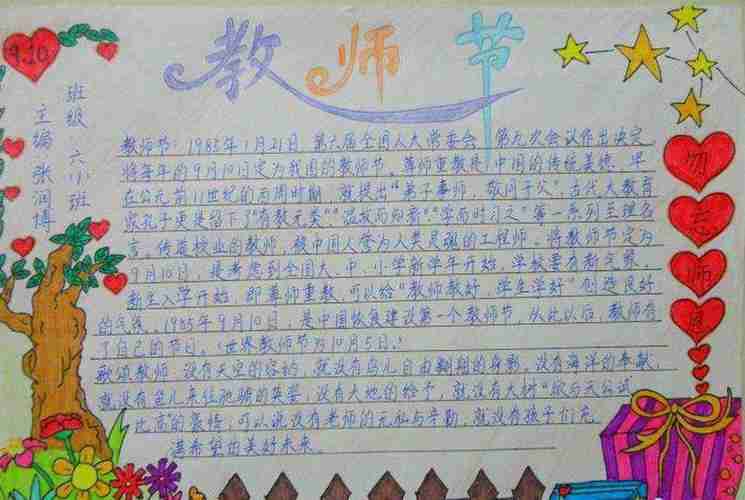 教师节
9.10
班级 六小班
主编 张润博
教师节：1985年1月21日，第六届全国人大常委会，第九次会议作出决定
将每年的9月10日定为我国的教师节。尊师重教是中国的传统美德，早
在公元前11世纪的西周时期，就提出“弟子事师，敬同于父”古代大教育
家孔子更是留下了“有教无类”“温故而知新”“学而时习之”等一系列至理名
言。传道授业的教师，被中国人誉为人类灵魂的工程师。将教师节定为
9月10日，是考虑到全国大、中、小学新学年开始，学校要有新气象，
新生入学开始，即尊师重教，可以给“教师教好，学生学好”创造良好
的气氛。1985年9月10日，是中国恢复建设第一个教师节，从此以后，教师有
了自己的节日。（世界教师节为10月5日。）
歌颂教师：没有天空的容纳，就没有鸟儿自由翱翔的身影，没有海洋的奉献，
就没有鱼儿来往的英姿；没有大地的给予，就没有大树“欲与天公试
比高”的豪情；可以说没有老师的无私与辛勤，就没有孩子们充
满希望的美好未来。
勿
忘
师
恩